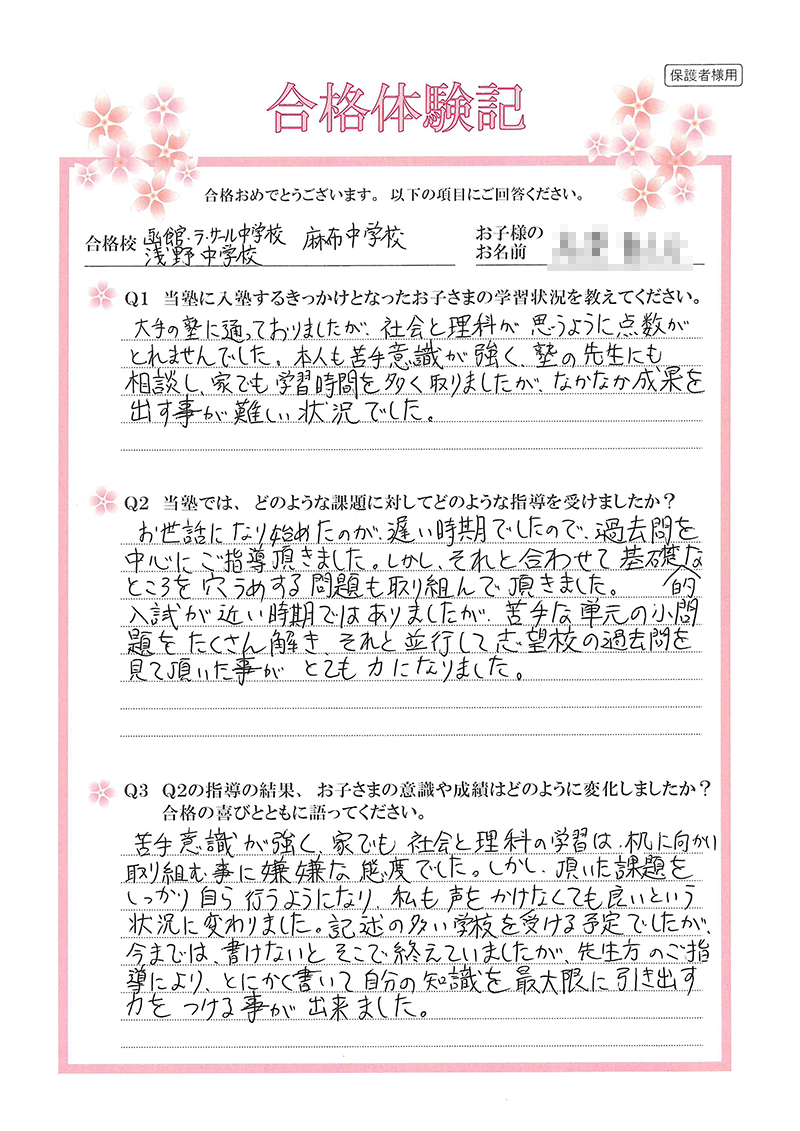 保護者様用
合格体験記
合格おめでとうございます。以下の項目にご回答ください。
合格校 函館ラ・サール中学校 麻布中学校
浅野中学校
お子様の
お名前
Q1 当塾に入塾するきっかけとなったお子さまの学習状況を教えてください。
大手の塾に通っておりましたが、社会と理科が思うように点数が
とれませんでした。本人も苦手意識が強く、塾の先生にも
相談し、家でも学習時間を多く取りましたが、なかなか成果を
出す事が難しい状況でした。
Q2 当塾では、どのような課題に対してどのような指導を受けましたか？
お世話になり始めたのが、遅い時期でしたので、過去問を
中心にご指導頂きました。しかし、それと合わせて基礎的な
ところを穴うめする問題も取り組んで頂きました。
入試が近い時期ではありましたが、苦手な単元の小問
題をたくさん解き、それと並行して志望校の過去問を
見て頂いた事がとても力になりました。
Q3 Q2の指導の結果、お子さまの意識や成績はどのように変化しましたか？
合格の喜びとともに語ってください。
苦手意識が強く、家でも社会と理科の学習は、机に向かい
取り組む事に嫌嫌な態度でした。しかし、頂いた課題を
しっかり自ら行うようになり、私も声をかけなくても良いという
状況に変わりました。記述の多い学校を受ける予定でしたが、
今までは、書けないとそこで終えていましたが、先生方のご指
導により、とにかく書いて自分の知識を最大限に引き出す
力をつける事が出来ました。